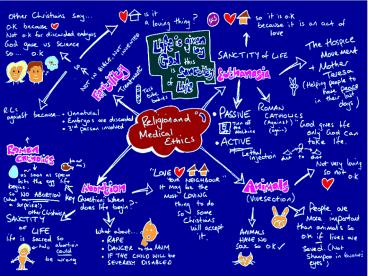 Religion and Medical
Ethics
Life is given
by
God this
is SANCTITY
of LIFE
Other Christians say...
OK because
Not OK for discarded embryos
God gave us science
so... OK
is it
a loving thing?
so it is ok
because it is an act of
love
Fertility
Treatment
R.C.s
against because...
- Unnatural
- Embryos are discarded
- 3rd person involved
Euthanasia
SANCTITY of LIFE
The Hospice
Movement
+
Mother
Teresa
(Helping people
to have peace
in their last
days)
PASSIVE
Turn off
the
machine
ACTIVE
Lethal
injection
ROMAN
CATHOLICS
(Against)
"God gives life
only God can
take life.
Roman
Catholics
as soon as sperm
hits the egg life
begins
So NO ABORTION
other Christians
SANCTITY
of
LIFE
life is sacred so
abortion
could be
wrong
Abortion
Key Question: When
does life begin?
What about...
RAPE
DANGER to the MUM
IF THE CHILD WILL BE
SEVERELY DISABLED
"LOVE
YOUR NEIGHBOUR"
It may be the
most LOVING
thing to
do so
Some Christians
will
accept
it.
Animals
(Vivisection)
ANIMALS
HAVE NO
SOUL so OK
Not very loving
so not
OK
People are
More
important
than animals so
OK if lives are
saved. (Not
Shampoo in bunnies
eyes)